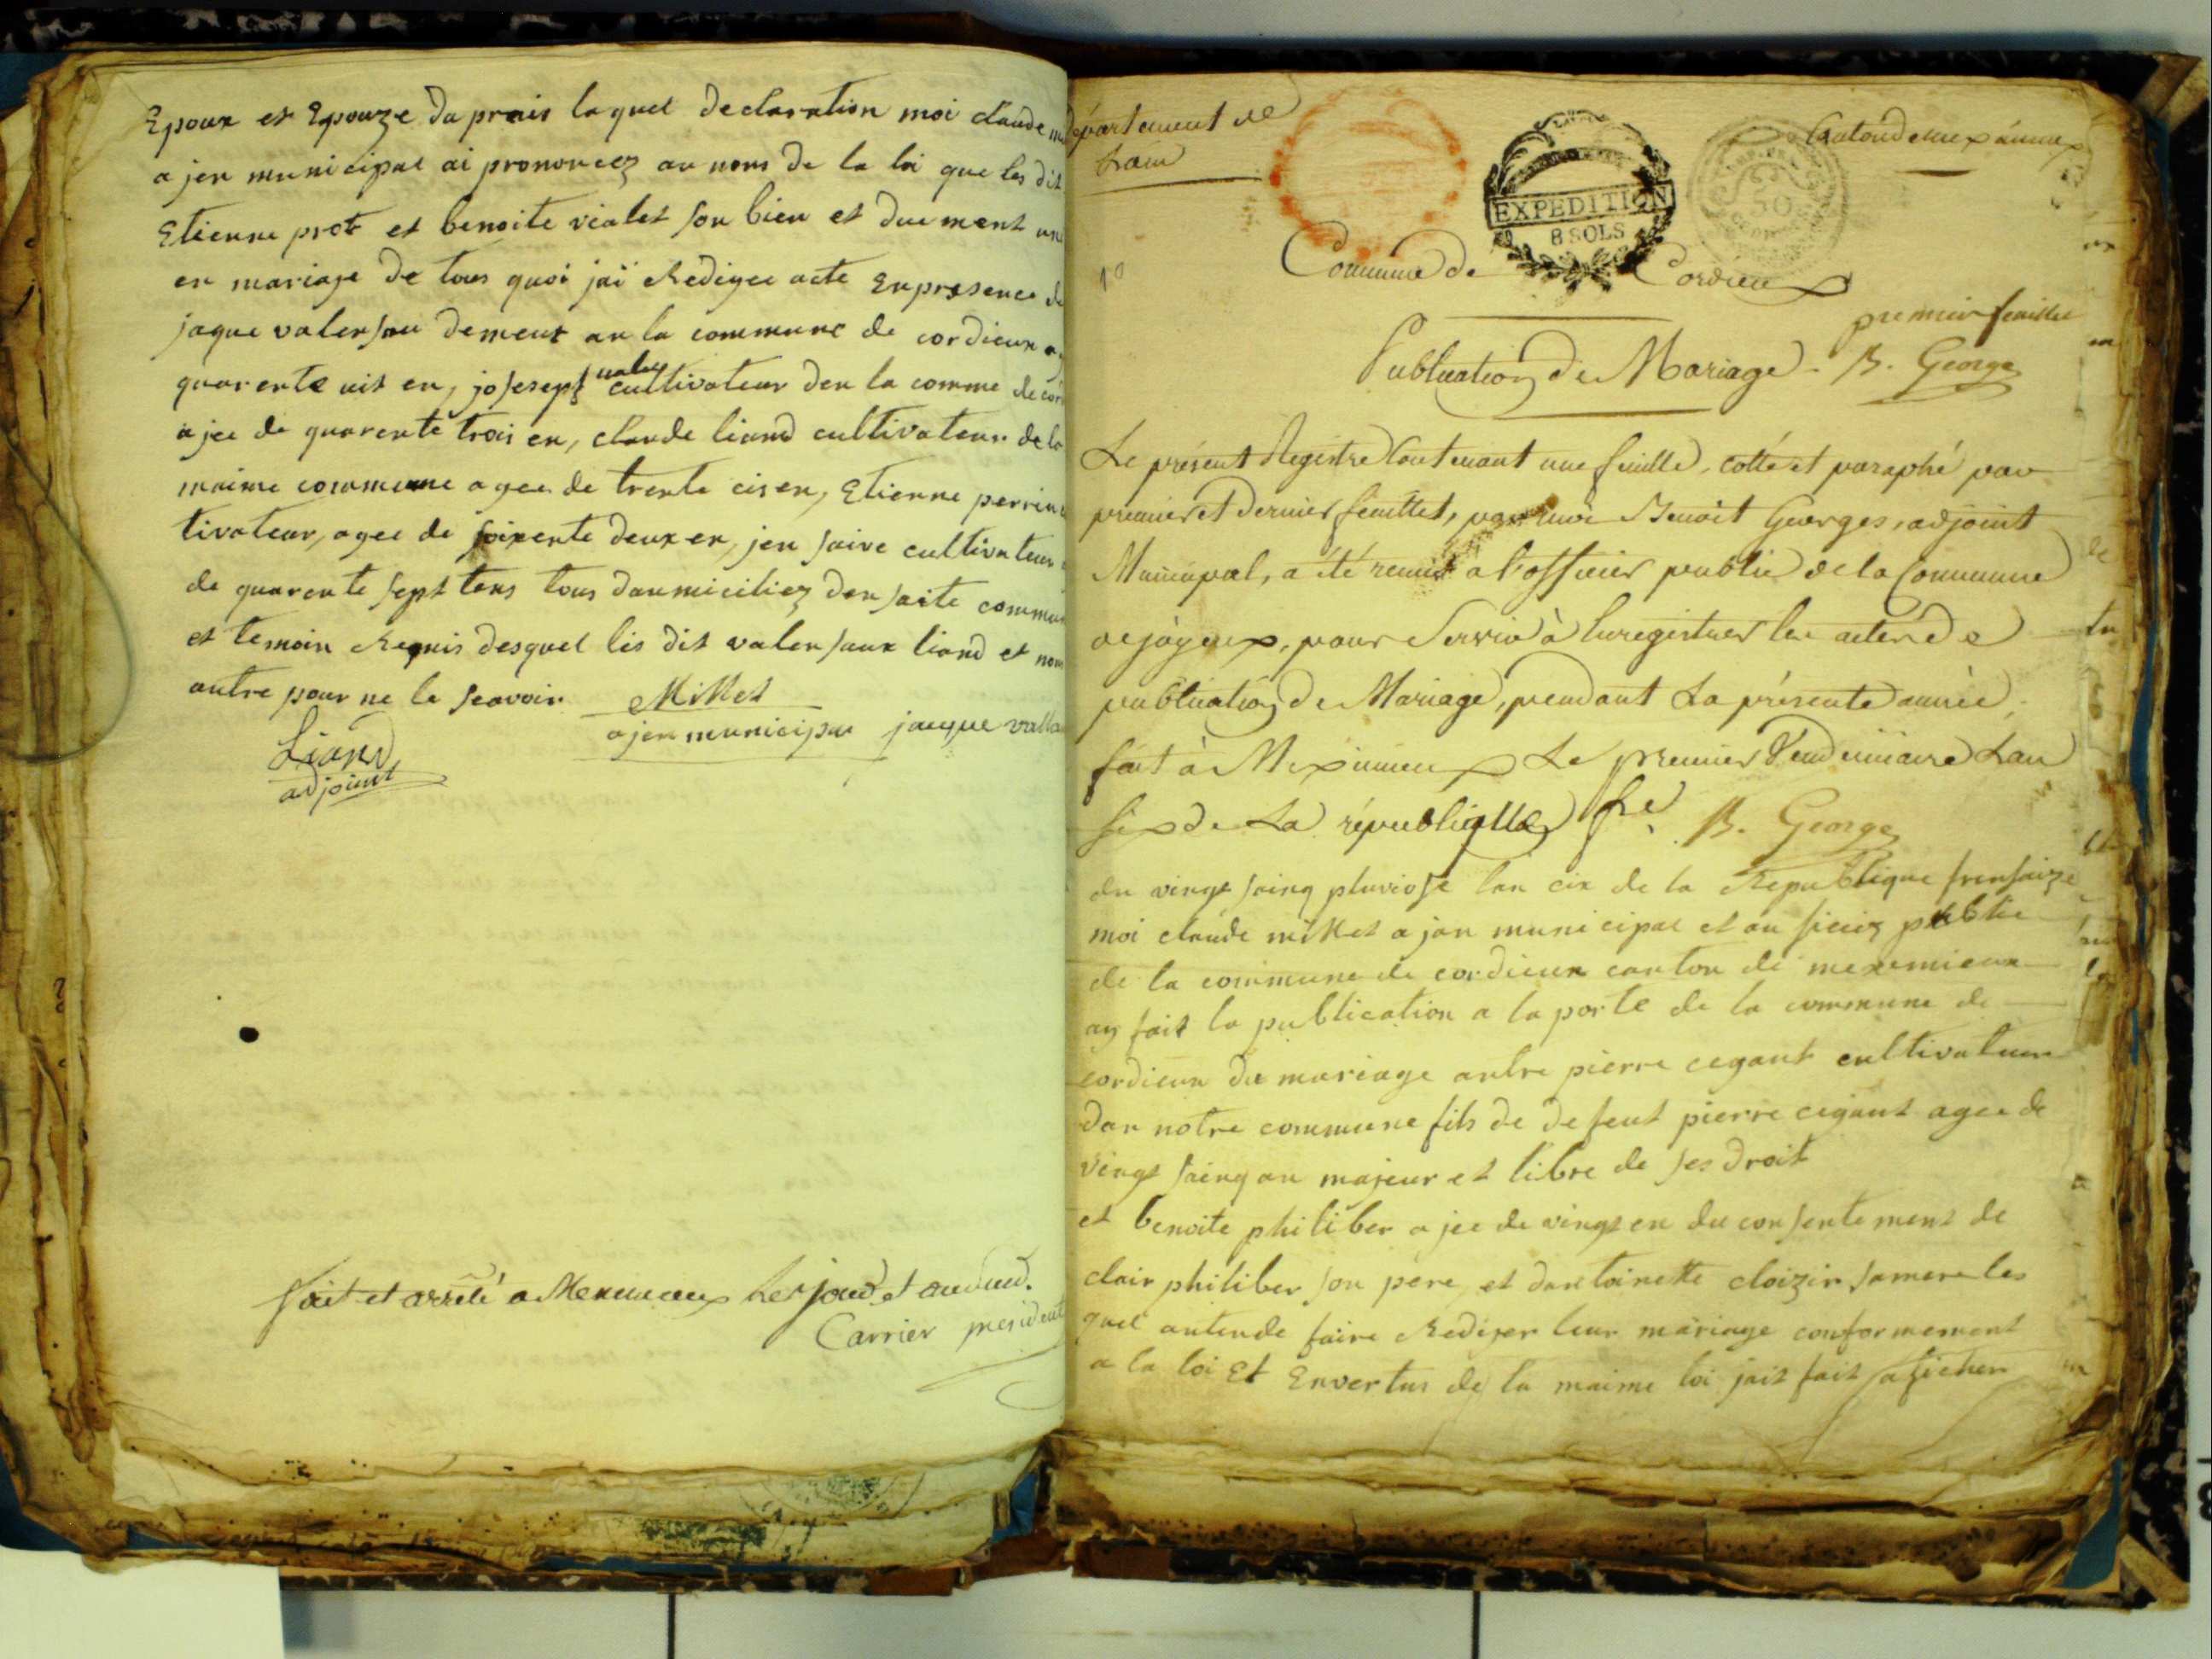 Epoux et Epouze da prais laquel declaration moi claude
ajen municipal ai prononcez au nom de la loi que les dit
Etienne prot et benoite vialet son bien et duement uni
en mariage de tous quoi jai Redigee acte En presence de
jaque valensau demeur an la commune de cordieux
quarente uit en, josesept valen cultivateur den la comme de
ajee de quarente trois en, claude liand cultivateur de la
maime commune agee de trente cis en, Etienne perrin
tivateur, agee de soixente deux en, jen saive cultivateur
de quarente sept tens tous daumiciliez den saite commun
et temoin Requis desquel les dit valensaux liand et non
autre pour ne le scavoir. Millet
ajen municipal jacque
Liand
adjoint
fait et arrêté a Meximieux les jour et an
Carrier president
département de
Lain
Canton de meximieux
EXPEDITION
8 SOLS
50
1º
Commune de Cordieux
premier feuillet
Publication de Mariage. B. George
Le présent Registre Contenant une feuille, cotté et paraphé par
premier et dernier feuillet, par moi Benoit Georges, adjoint
Municipal, a été remis a l'officier public de la Commune
de joyeux, pour Servir à Enregistrer les actes de
publication de Mariage, pendant La présente année,
fait à Meximieux Le premier Vendemiaire Lan
six de La république fse B. George
du vingt sainq pluviose lan cix de la Republique fransaize
moi claude millet ajan municipal et au ficiez public
de la commune de cordieux canton de meximieux
ay fait la publication a la porte de la commune de
cordieux du mariage antre pierre cegant cultivateur
dan notre commune fils de defeut pierre cegant agee de
vingt sainq an majeur et libre de ses droit
et benoite philiber ajee de vingt en du consentement de
clair philiber son pere, et dantoinette cloizir samere les
quel antende faire Rediger leur mariage conformement
a la loi Et Envertus de la maime loi jait fait aficher